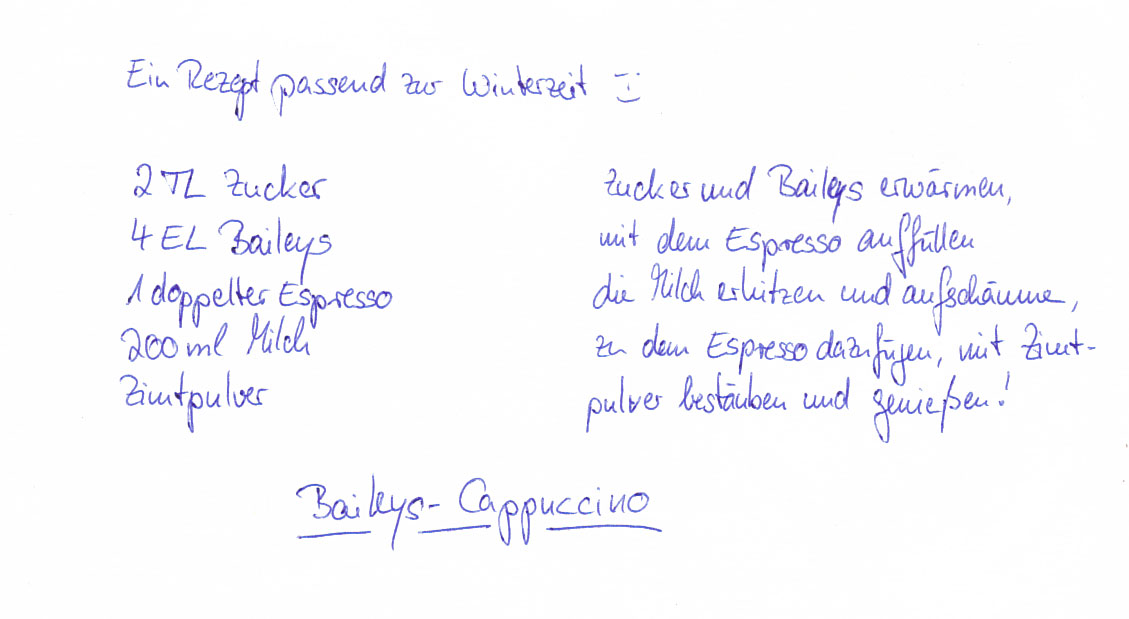 Ein Rezept passend zur Winterzeit :)
2 TL Zucker
4 EL Baileys
1 doppelter Espresso
200 ml Milch
Zimtpulver
Zucker und Baileys erwärmen,
mit dem Espresso auffüllen
die Milch erhitzen und aufschäume,
zu dem Espresso dazufügen, mit Zimt-
pulver bestäuben und genießen!
Baileys-Cappuccino